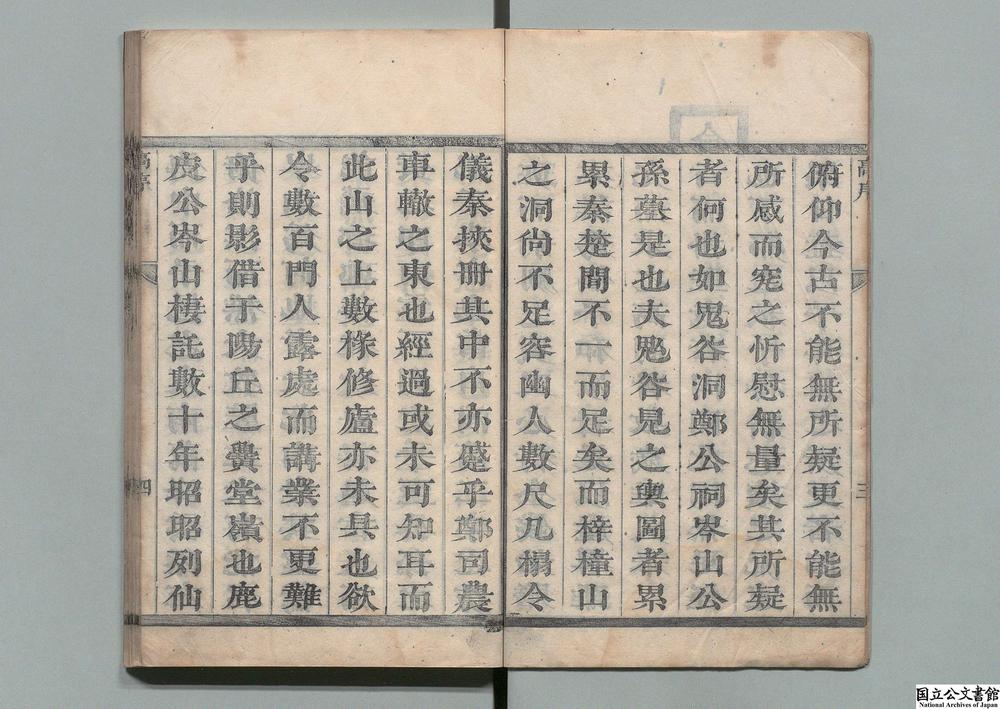 俯仰今古不能無所疑更不能無
所感而究之忻慰無量矣其所疑
者何也如鬼谷洞鄭公祠岑山公
孫墓是也夫鬼谷見之輿圖者累
累秦楚間不一而足矣而梓橦山
之洞尚不足容幽人數尺几榻令
儀秦挾冊其中不亦蹙乎鄭司農
車轍之東也經過或未可知耳而
此山之上數椽修廬亦未具也欲
令數百門人露處而講業不更難
乎則影借于陽丘之黌堂嶺也鹿
皮公岑山棲託數十年昭昭列仙
三
四
国立公文書館
National Archives of Japan